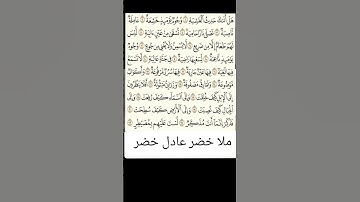 هَلْ أَتَىٰكَ حَدِيثُ ٱلْغَٰشِيَةِ ۝ وُجُوهٌ يَوْمَئِذٍ خَٰشِعَةٌ ۝ عَامِلَةٌ
نَّاصِبَةٌ ۝ تَصْلَىٰ نَارًا حَامِيَةً ۝ تُسْقَىٰ مِنْ عَيْنٍ ءَانِيَةٍ ۝ لَّيْسَ
لَهُمْ طَعَامٌ إِلَّا مِن ضَرِيعٍ ۝ لَّا يُسْمِنُ وَلَا يُغْنِي مِن جُوعٍ ۝ وُجُوهٌ
يَوْمَئِذٍ نَّاعِمَةٌ ۝ لِّسَعْيِهَا رَاضِيَةٌ ۝ فِي جَنَّةٍ عَالِيَةٍ ۝ لَّا تَسْمَعُ
فِيهَا لَٰغِيَةً ۝ فِيهَا عَيْنٌ جَارِيَةٌ ۝ فِيهَا سُرُرٌ مَّرْفُوعَةٌ ۝ وَأَكْوَابٌ
مَّوْضُوعَةٌ ۝ وَنَمَارِقُ مَصْفُوفَةٌ ۝ وَزَرَابِيُّ مَبْثُوثَةٌ ۝ أَفَلَا يَنظُرُونَ
إِلَى ٱلْإِبِلِ كَيْفَ خُلِقَتْ ۝ وَإِلَى ٱلسَّمَآءِ كَيْفَ رُفِعَتْ ۝ وَإِلَى
ٱلْجِبَالِ كَيْفَ نُصِبَتْ ۝ وَإِلَى ٱلْأَرْضِ كَيْفَ سُطِحَتْ ۝
فَذَكِّرْ إِنَّمَآ أَنتَ مُذَكِّرٌ ۝ لَّسْتَ عَلَيْهِم بِمُصَيْطِرٍ ۝
ملا خضر عادل خضر